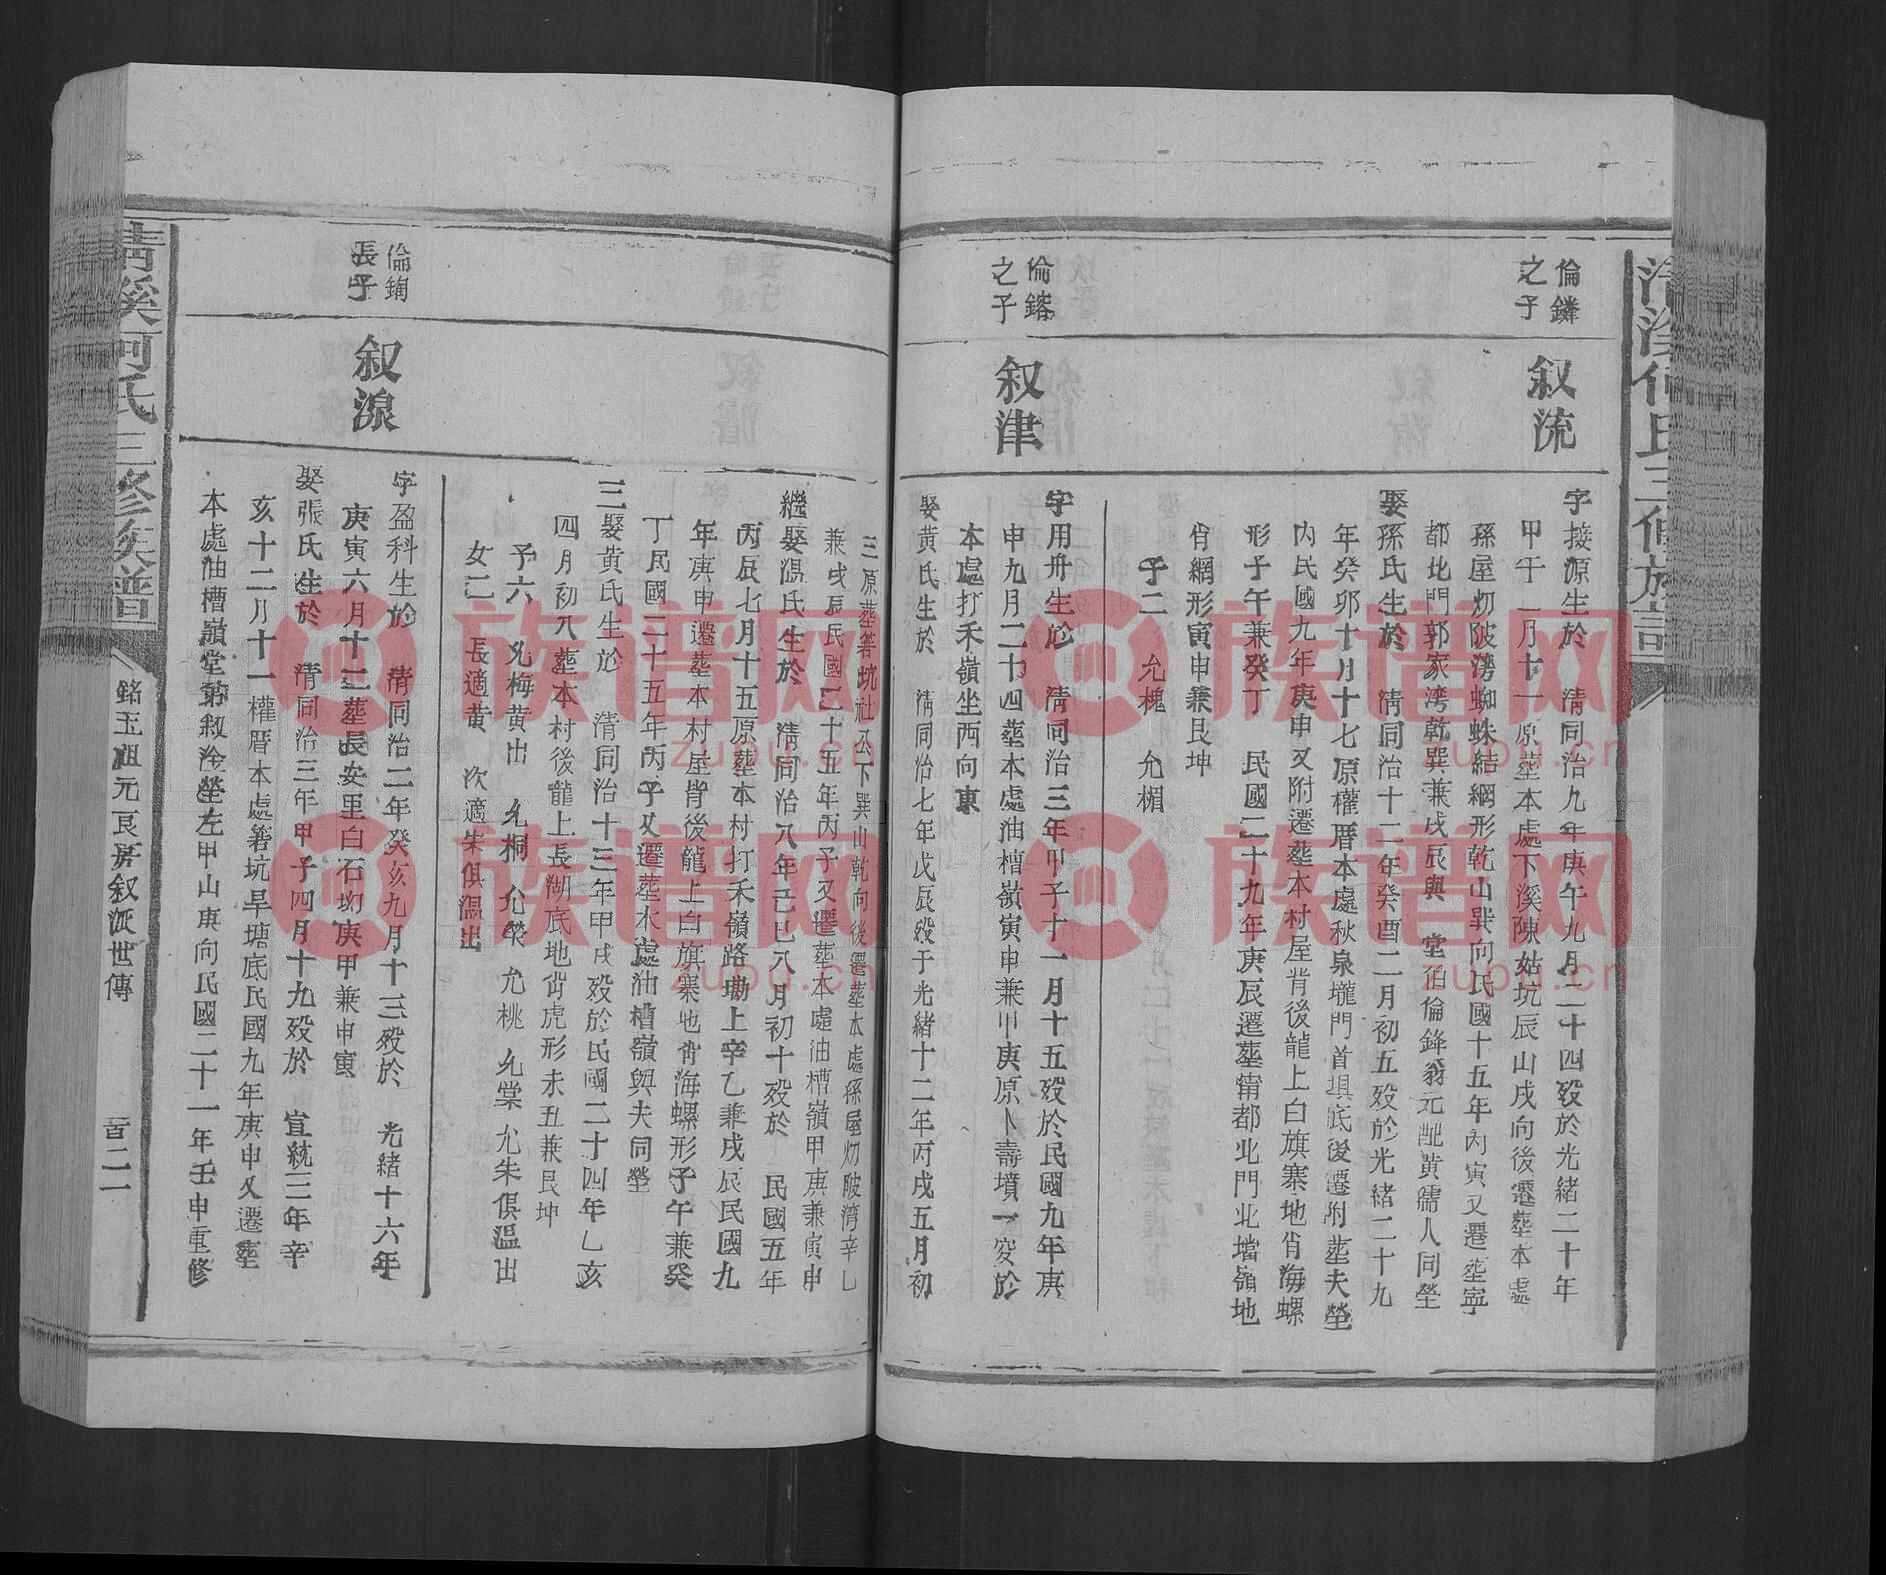 倫鏻
之子
叙流
字接源生於 清同治九年庚午九月二十四歿於光緒二十年
甲午十一月十一原塟本處下溪陳姑坑辰山戌向後遷塟本處
孫屋㘭陂湾蜘蛛結網形乾山巽向民國十五年丙寅又遷塟寧
都北門郭家湾乾巽兼戌辰與 堂伯倫鋒翁元配黄孺人同塋
娶孫氏生於 清同治十二年癸酉二月初五歿於光緒二十九
年癸卯十月十七原權厝本處秋泉壠門首垻底後遷附塟夫塋
内民國九年庚申又附遷塟本村屋背後龍上白旗寨地肖海螺
形子午兼癸丁 民國二十九年庚辰遷塟寧都北門北壋嶺地
肖網形寅申兼艮坤
子二 允槐 允楣
倫鎔
之子
叙津
字用舟生於 清同治三年甲子十一月十五歿於民國九年庚
申九月二十四塟本處油槽嶺寅申兼甲庚原卜壽墳一穴於
本處打禾嶺坐西向東
娶黄氏生於 清同治七年戊辰歿于光緒十二年丙戌五月初
三原塟箬坑社公下巽山乾向後遷塟本處孫屋㘭陂湾辛乙
兼戌辰民國二十五年丙子又遷塟本處油槽嶺甲庚兼寅申
繼娶溫氏生於 清同治八年己巳八月初十歿於 民國五年
丙辰七月十五原塟本村打禾嶺路墈上辛乙兼戌辰民國九
年庚申遷塟本村屋背後龍上白旗寨地肖海螺形子午兼癸
丁民國二十五年丙子又遷塟本處油槽嶺與夫同塋
三娶黄氏生於 清同治十三年甲戌歿於民國二十四年乙亥
四月初八塟本村後龍上長湖底地肖虎形未丑兼艮坤
子六 允梅黄出 允桐 允榮 允桃 允棠 允朱俱溫出
女二 長適黄 次適朱俱溫出
倫錭
長子
叙湶
字盈科生於 清同治二年癸亥九月十三歿於 光緒十六年
庚寅六月十二塟長安里白石㘭庚甲兼申寅
娶張氏生於 清同治三年甲子四月十九歿於 宣統三年辛
亥十二月十一權厝本處箬坑旱塘底民國九年庚申又遷塟
本處油槽嶺堂弟叙淦塋左甲山庚向民國二十一年壬申重修
清溪何氏三修族譜
銘玉祖元良房叙派世傳
百二一